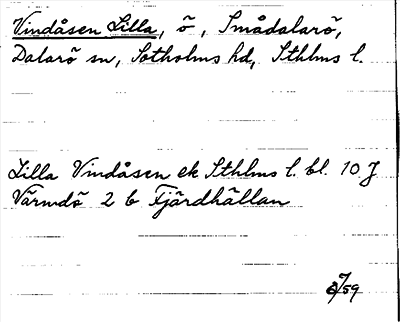 Vindåsen Lilla, ö, Smådalarö,
Dalarö sn, Sotholms hd, Sthlms l.
Lilla Vindåsen ek Sthlms l. bl. 10 J
Värmdö 2 b Fjärdhällan